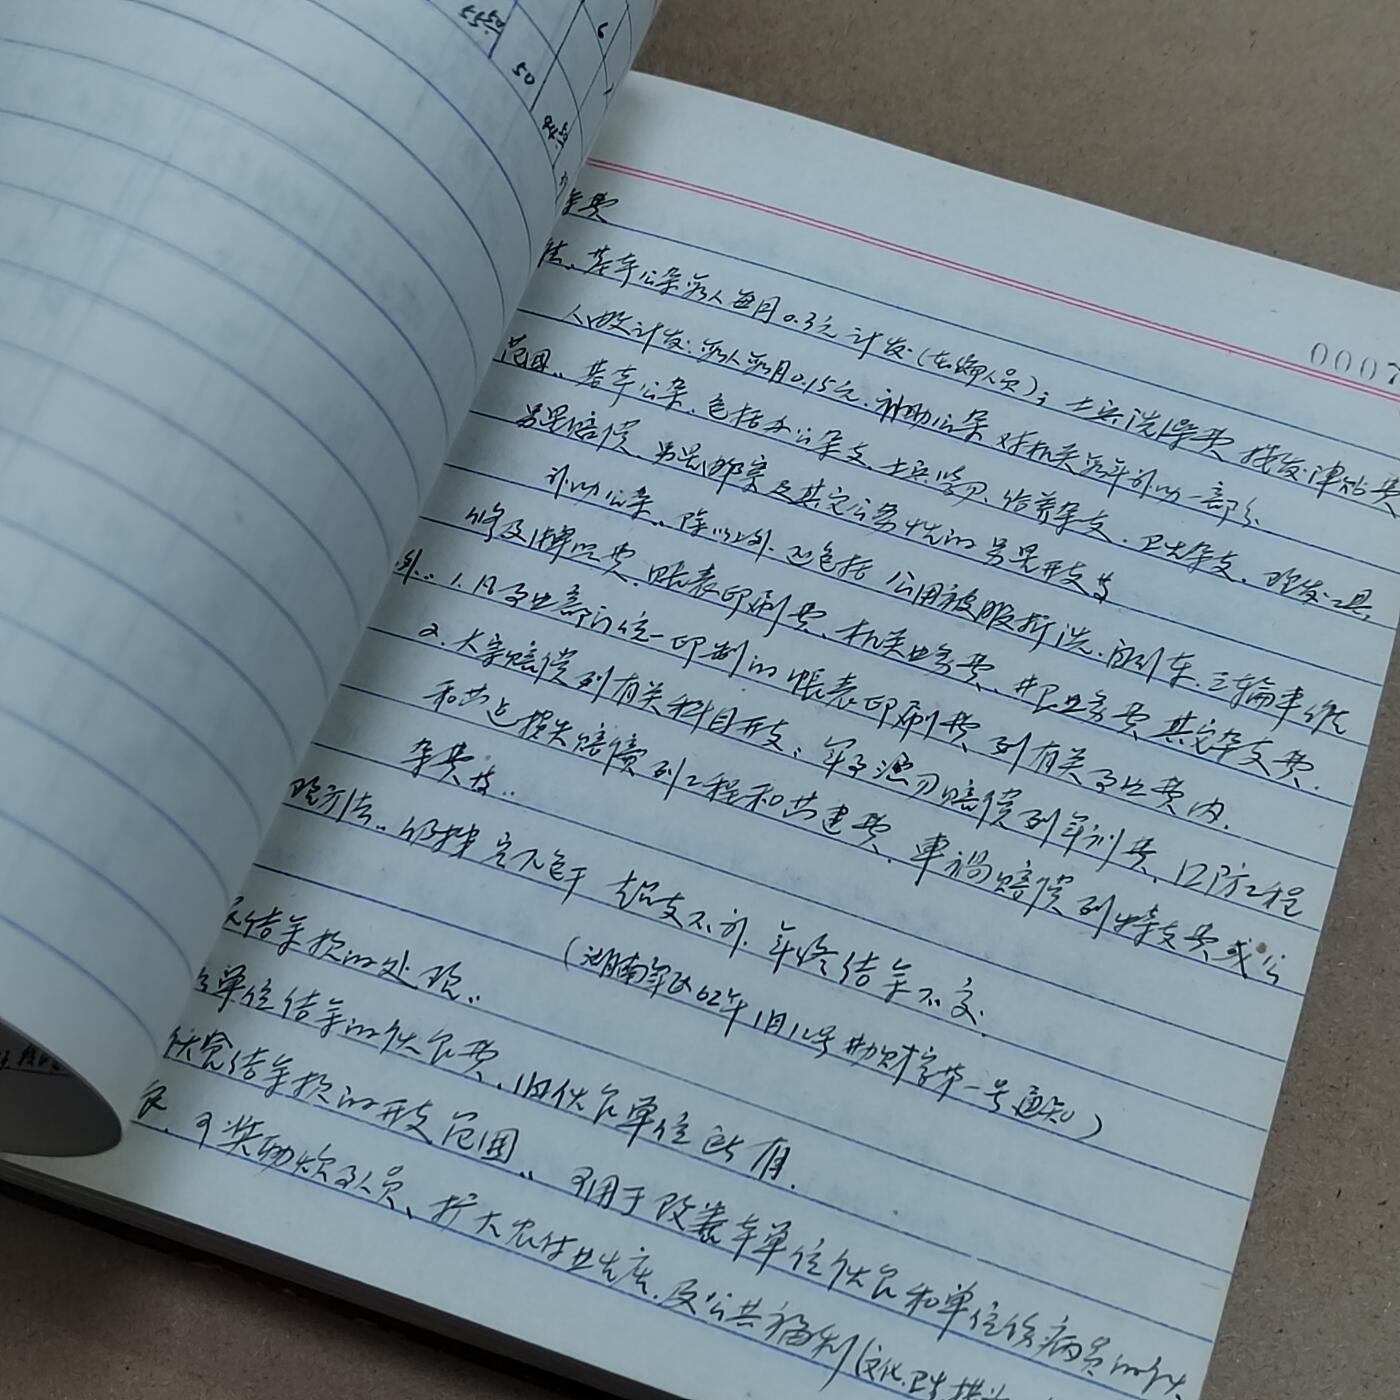 55.5
6
50
0007
杂费
法、基本公杂每人每月0.3元计发(在编人员);士兵洗理费 按发津贴费
人数计发.每人每月0.15元.补助公杂 对机关近年补助一部分
范围、基本公杂.包括办公杂支.士兵学习.给养杂支.卫生杂支.
另星赔偿.另星及其它公杂性的另星开支等
补助公杂、除以上外.还包括 公用被服拆洗.自行车.三轮车修
修及牌照费.帐表印刷费、机关业务费、业务费 其它杂支费.
外.1.凡事业部门统一印制的帐表印刷费 列有关事业费内.
2.大宗赔偿列有关科目开支;军事演习赔偿列军训费、国防工程
和营建损失赔偿列工程和营建费.车祸赔偿列特支费或公
杂费等..
理方法.仍按定不包干 超支不补.年终结余不交.
(湖南军区62年1月12号财字第一号通知)
结余款的处理..
单位结余的伙食费、归伙食单位所有.
伙食结余款的开支范围、可用于改善本单位伙食和单位伤病员的
可奖励炊事人员、扩大农付业生产.及公共福利(文化.卫生